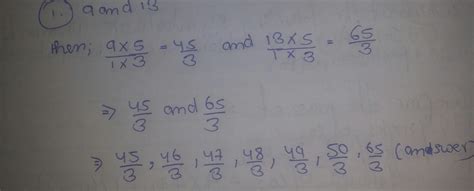 1. 9 and 13
then; 9×5/1×3 = 45/3 and 13×5/1×3 = 65/3
⇒ 45/3 and 65/3
⇒ 45/3, 46/3, 47/3, 48/3, 49/3, 50/3, 65/3 (answer)